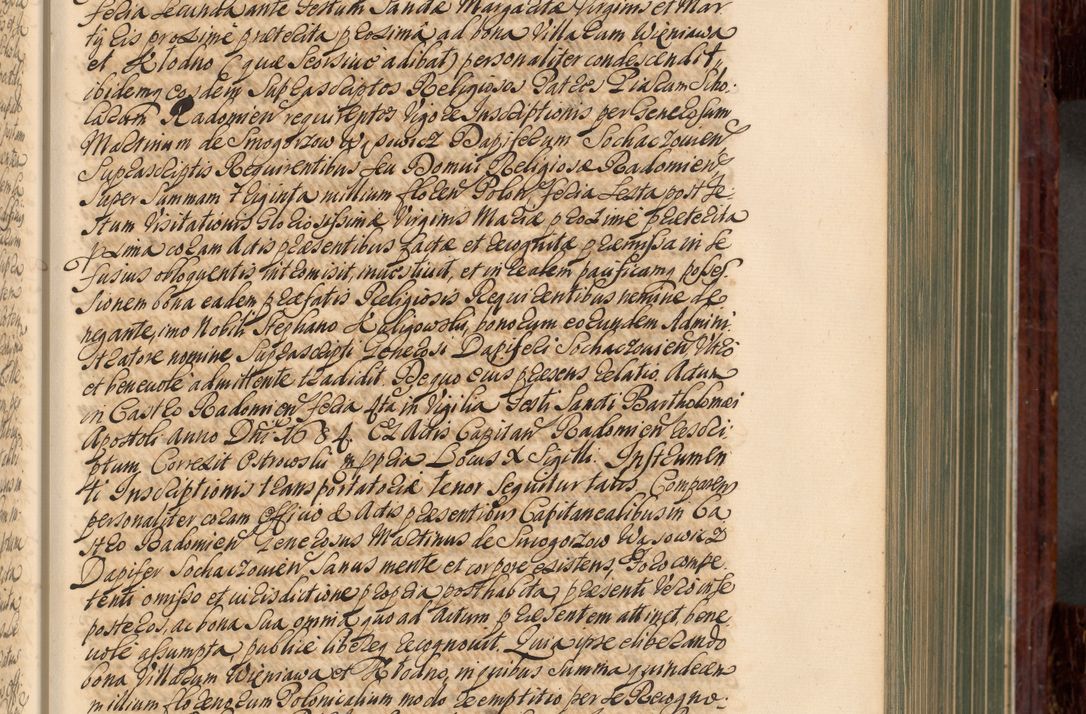 feria secunda ante Festum Sanctæ Margaritæ Virginis et Mar
tyris proxime præterita proxima, ad bona Villarum Wieniawa
et Kłodno (: quæ seorsive adibat) personaliter condescendit,
ibidemq eosdem Suprascriptos Religiosos Patres Piarum Scho.
larum Radomien requirentes vigore Inscriptionis per Generosum
Martinum de Smogorzow Wąsowicz Dapiferum Sochaczovien
Suprascriptis Requirentibus seu Domui Religiosæ Radomien
super Summam triginta millium floren Polon feria sexta post Fe
stum Visitationis Gloriosissimæ Virginis Mariæ proxime præterita
proxima coram Actis præsentibus factæ et recognitæ præmissa in se
fusius obloquentis intromisit, investivit, et in realem pacificamq posses
sionem bona eadem præfatis Religiosis Requirentibus nemine de
negante, imo Nobili Stephano Kaligowski, bonorum eorundem Admini
stratore nomine Suprascripti Generosi Dapiferi Sochaczovien Ultro
et benevole admittente tradidit. De quo eius præsens relatio. Actum
in Castro Radomien feria 4ta in Vigilia Festi Sancti Bartholomæi
Apostoli Anno Dni 1684. Ex Actis Capitan Radomien rescri
ptum. Correxit Ostrowski mppria Locus Sigilli. Instrumen
ti Inscriptionis transportatoriæ tenor sequitur talis. Comparens
personaliter coram Officio & Actis præsentibus Capitanealibus in Ca
stro Radomien Generosus Martinus de Smogorzow Wąsowicz
Dapifer Sochaczovien Sanus mente et corpore existens, Foro compe
tenti omisso et iurisdictione propria posthabita, præsenti vero in se
posteros, ac bona sua omnia quo ad Actum præsentem attinet, bene
vole assumpta publice libereq recognovit. Quia ipse eliberando
bona Villarum Wieniawa et Kłodno, in quibus Summa quindecim
millium florenorum Polonicalium modo reemptitio per se Recogno-